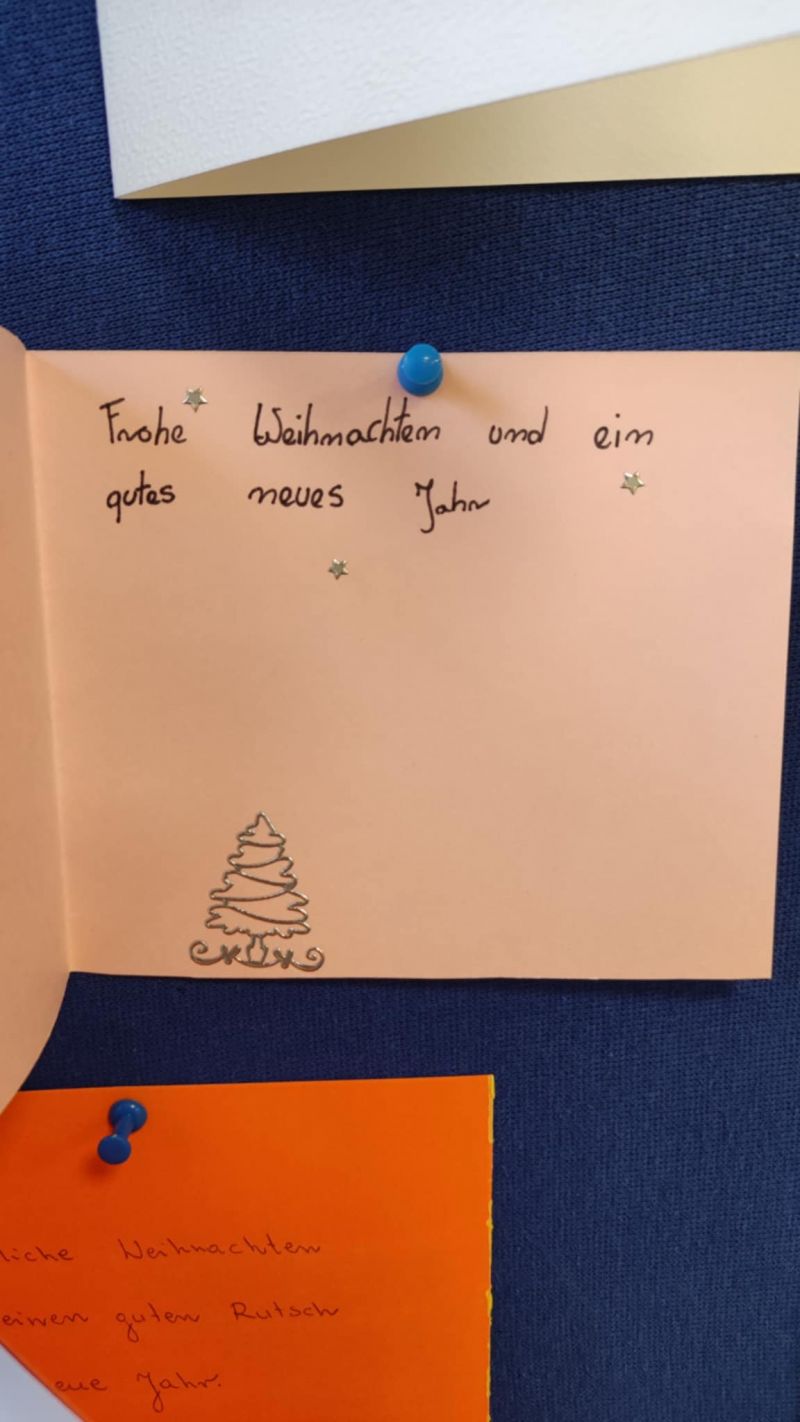 Frohe Weihnachten und ein
gutes neues Jahr
liche Weihnachten
einen guten Rutsch
eue Jahr.